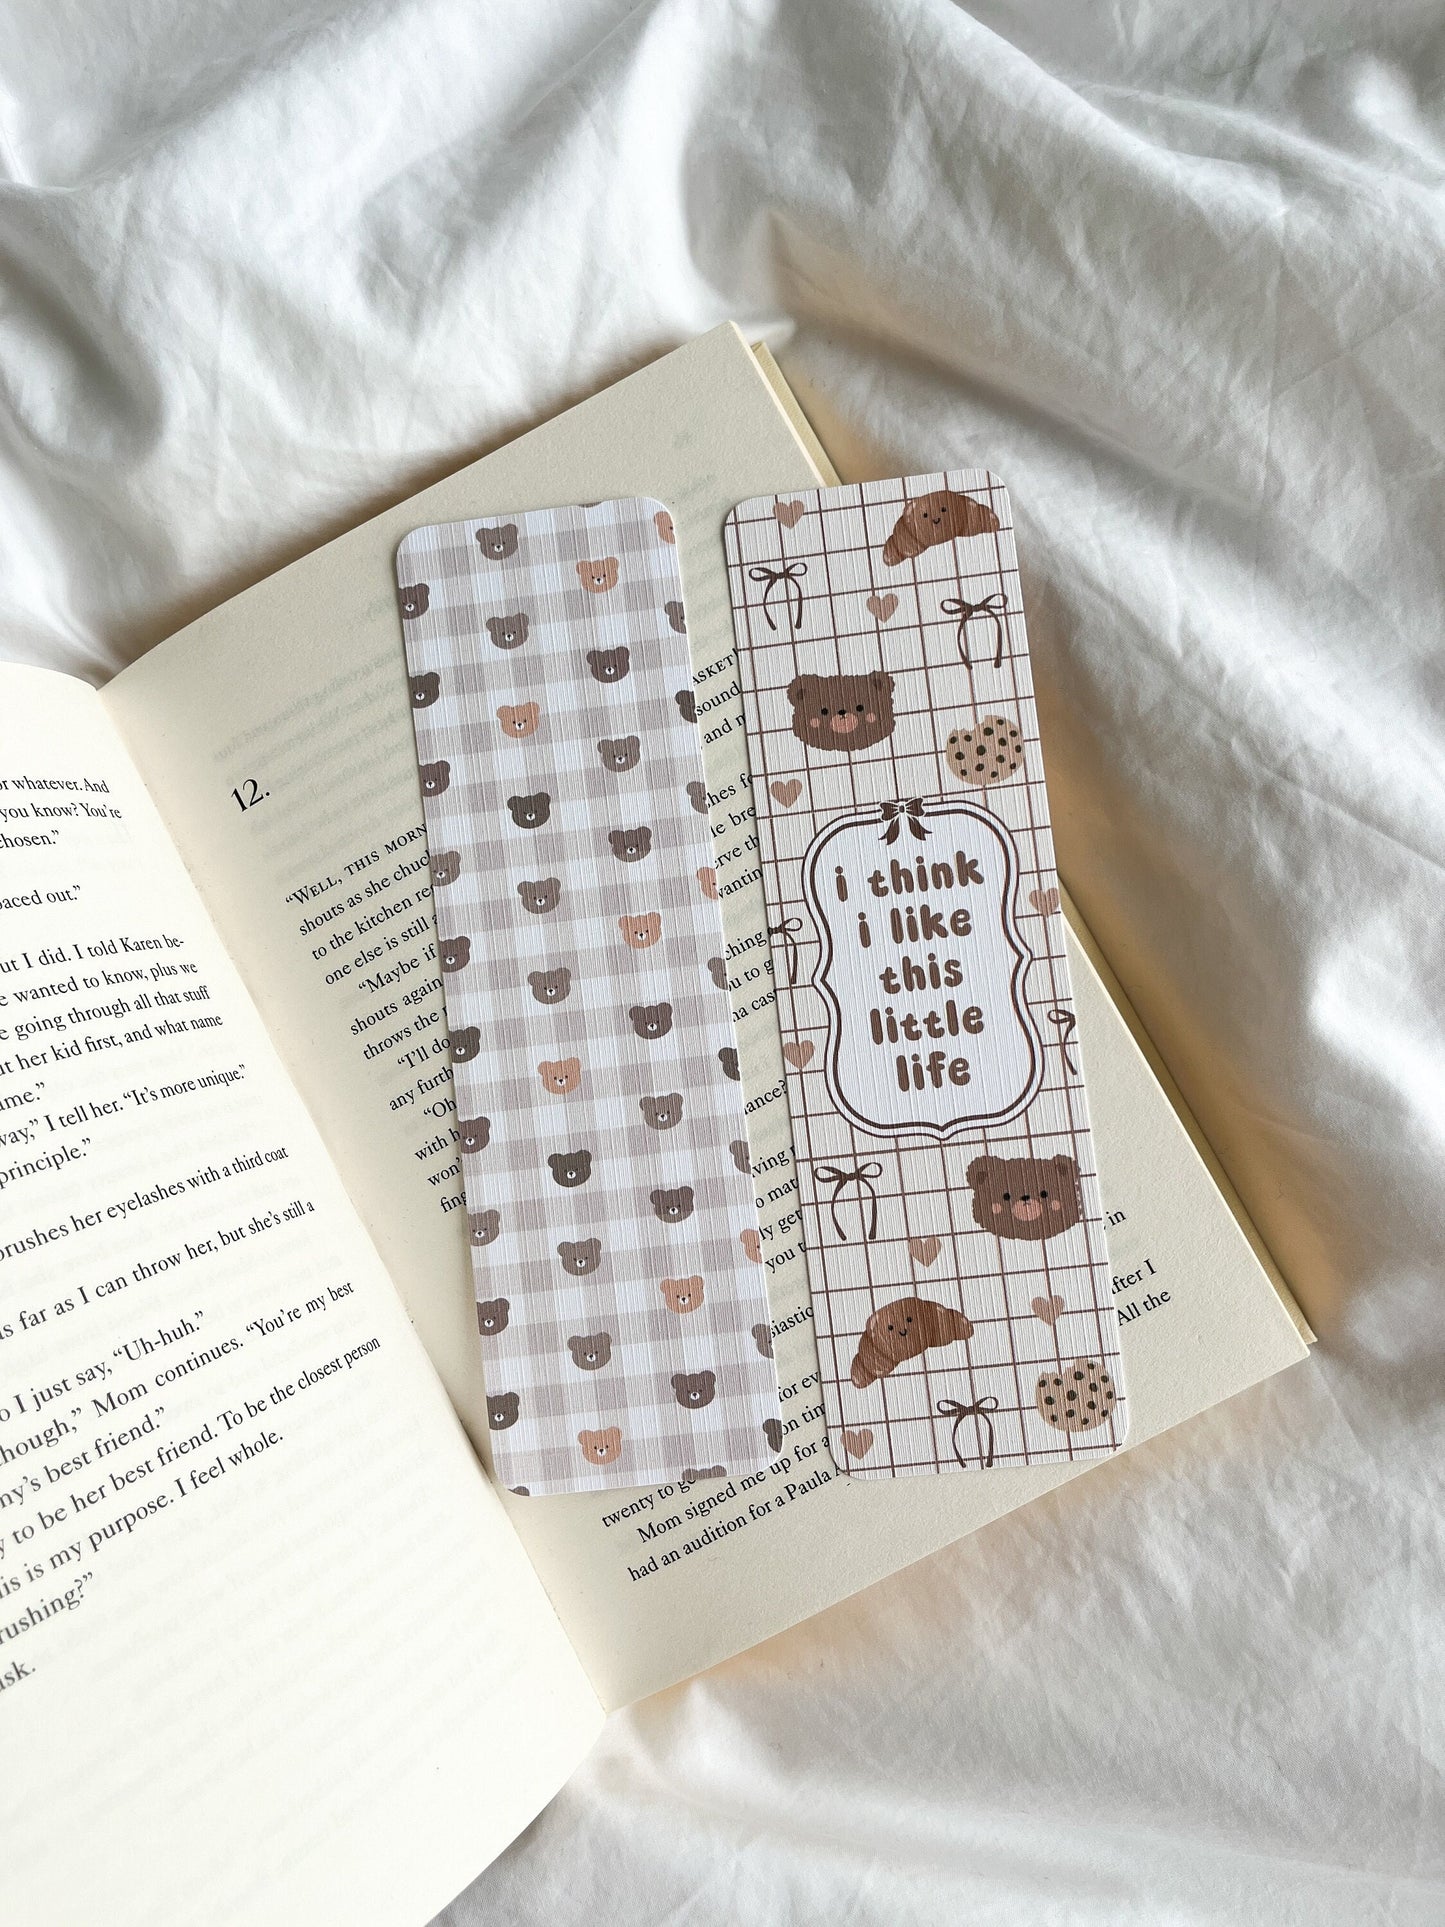 or whatever. And
you know? You're
chosen."
paced out."
ut I did. I told Karen be-
e wanted to know, plus we
e going through all that stuff
ut her kid first, and what name
ame."
way," I tell her. "It's more unique."
principle."
brushes her eyelashes with a third coat
as far as I can throw her, but she's still a
o I just say, "Uh-huh."
hough," Mom continues. "You're my best
ny's best friend."
y to be her best friend. To be the closest person
his is my purpose. I feel whole.
rushing?"
ask.
12.
"WELL, THIS MORN
shouts as she chuc
to the kitchen re
one else is still
"Maybe if
shouts again
throws the
"I'll do
any furth
"Oh
with h
won'
fing
ASKET!
sound
and
twenty to
Mom signed me up for a
had an audition for a Paula
in
after I
All the
i think
i like
this
little
life